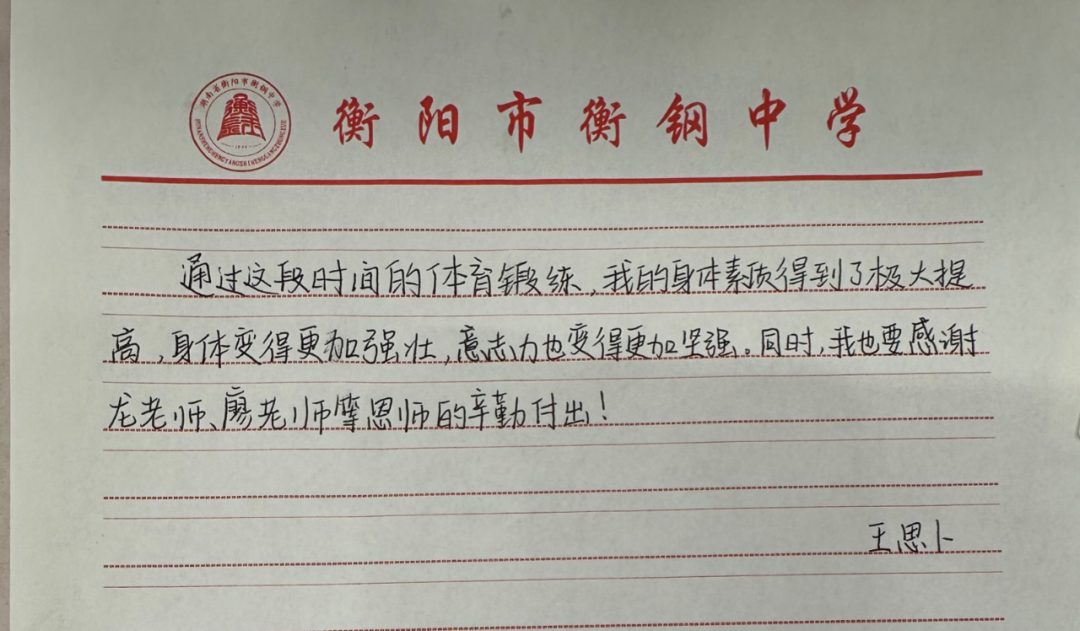 湖南省衡阳市衡钢中学
衡阳市衡钢中学
通过这段时间的体育锻练，我的身体素质得到了极大提
高，身体变得更加强壮，意志力也变得更加坚强。同时，我也要感谢
龙老师、廖老师等恩师的辛勤付出！
王思卜